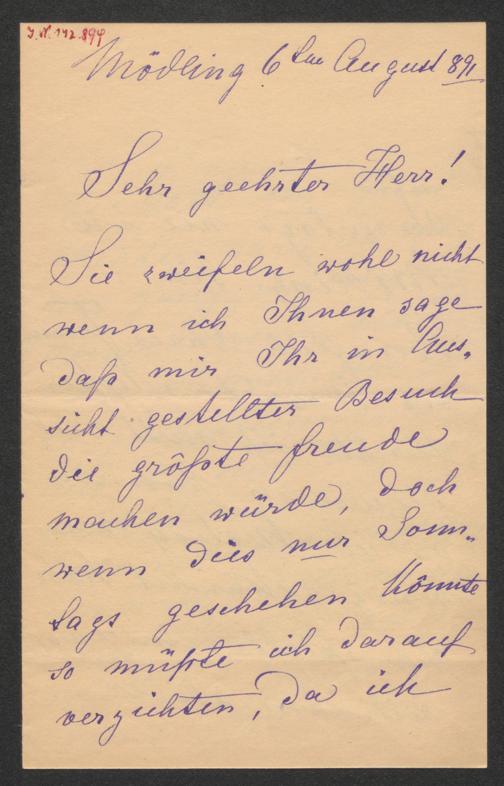 I.N. 172.894
Mödling 6ten August 891
Sehr geehrter Herr!
Sie zweifeln wohl nicht
wenn ich Ihnen sage
daß mir Ihr in Aus„
sicht gestellter Besuch
die größte Freude
machen würde, doch
wenn dies nur Sonn„
tags geschehen könnte
so müßte ich darauf
verzichten, da ich